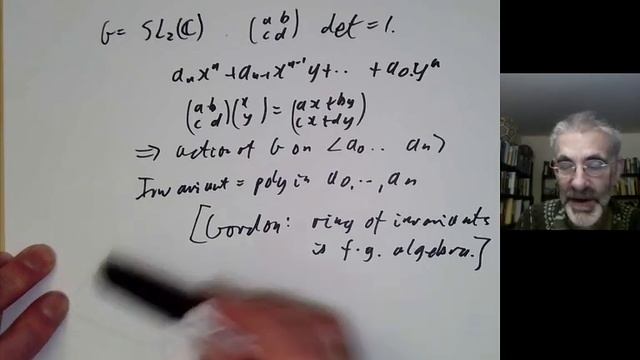 G= SL₂(ℂ) (a b c d) det=1.
aₙxⁿ+aₙ₋₁xⁿ⁻¹y+.. +a₀yⁿ
(a b c d)(x y)=(ax+by cx+dy)
⇒ action of G on <a₀.. aₙ>
Invariant = poly in a₀,..,aₙ
[Gordon: ring of invariants
is f.g. algebra.]